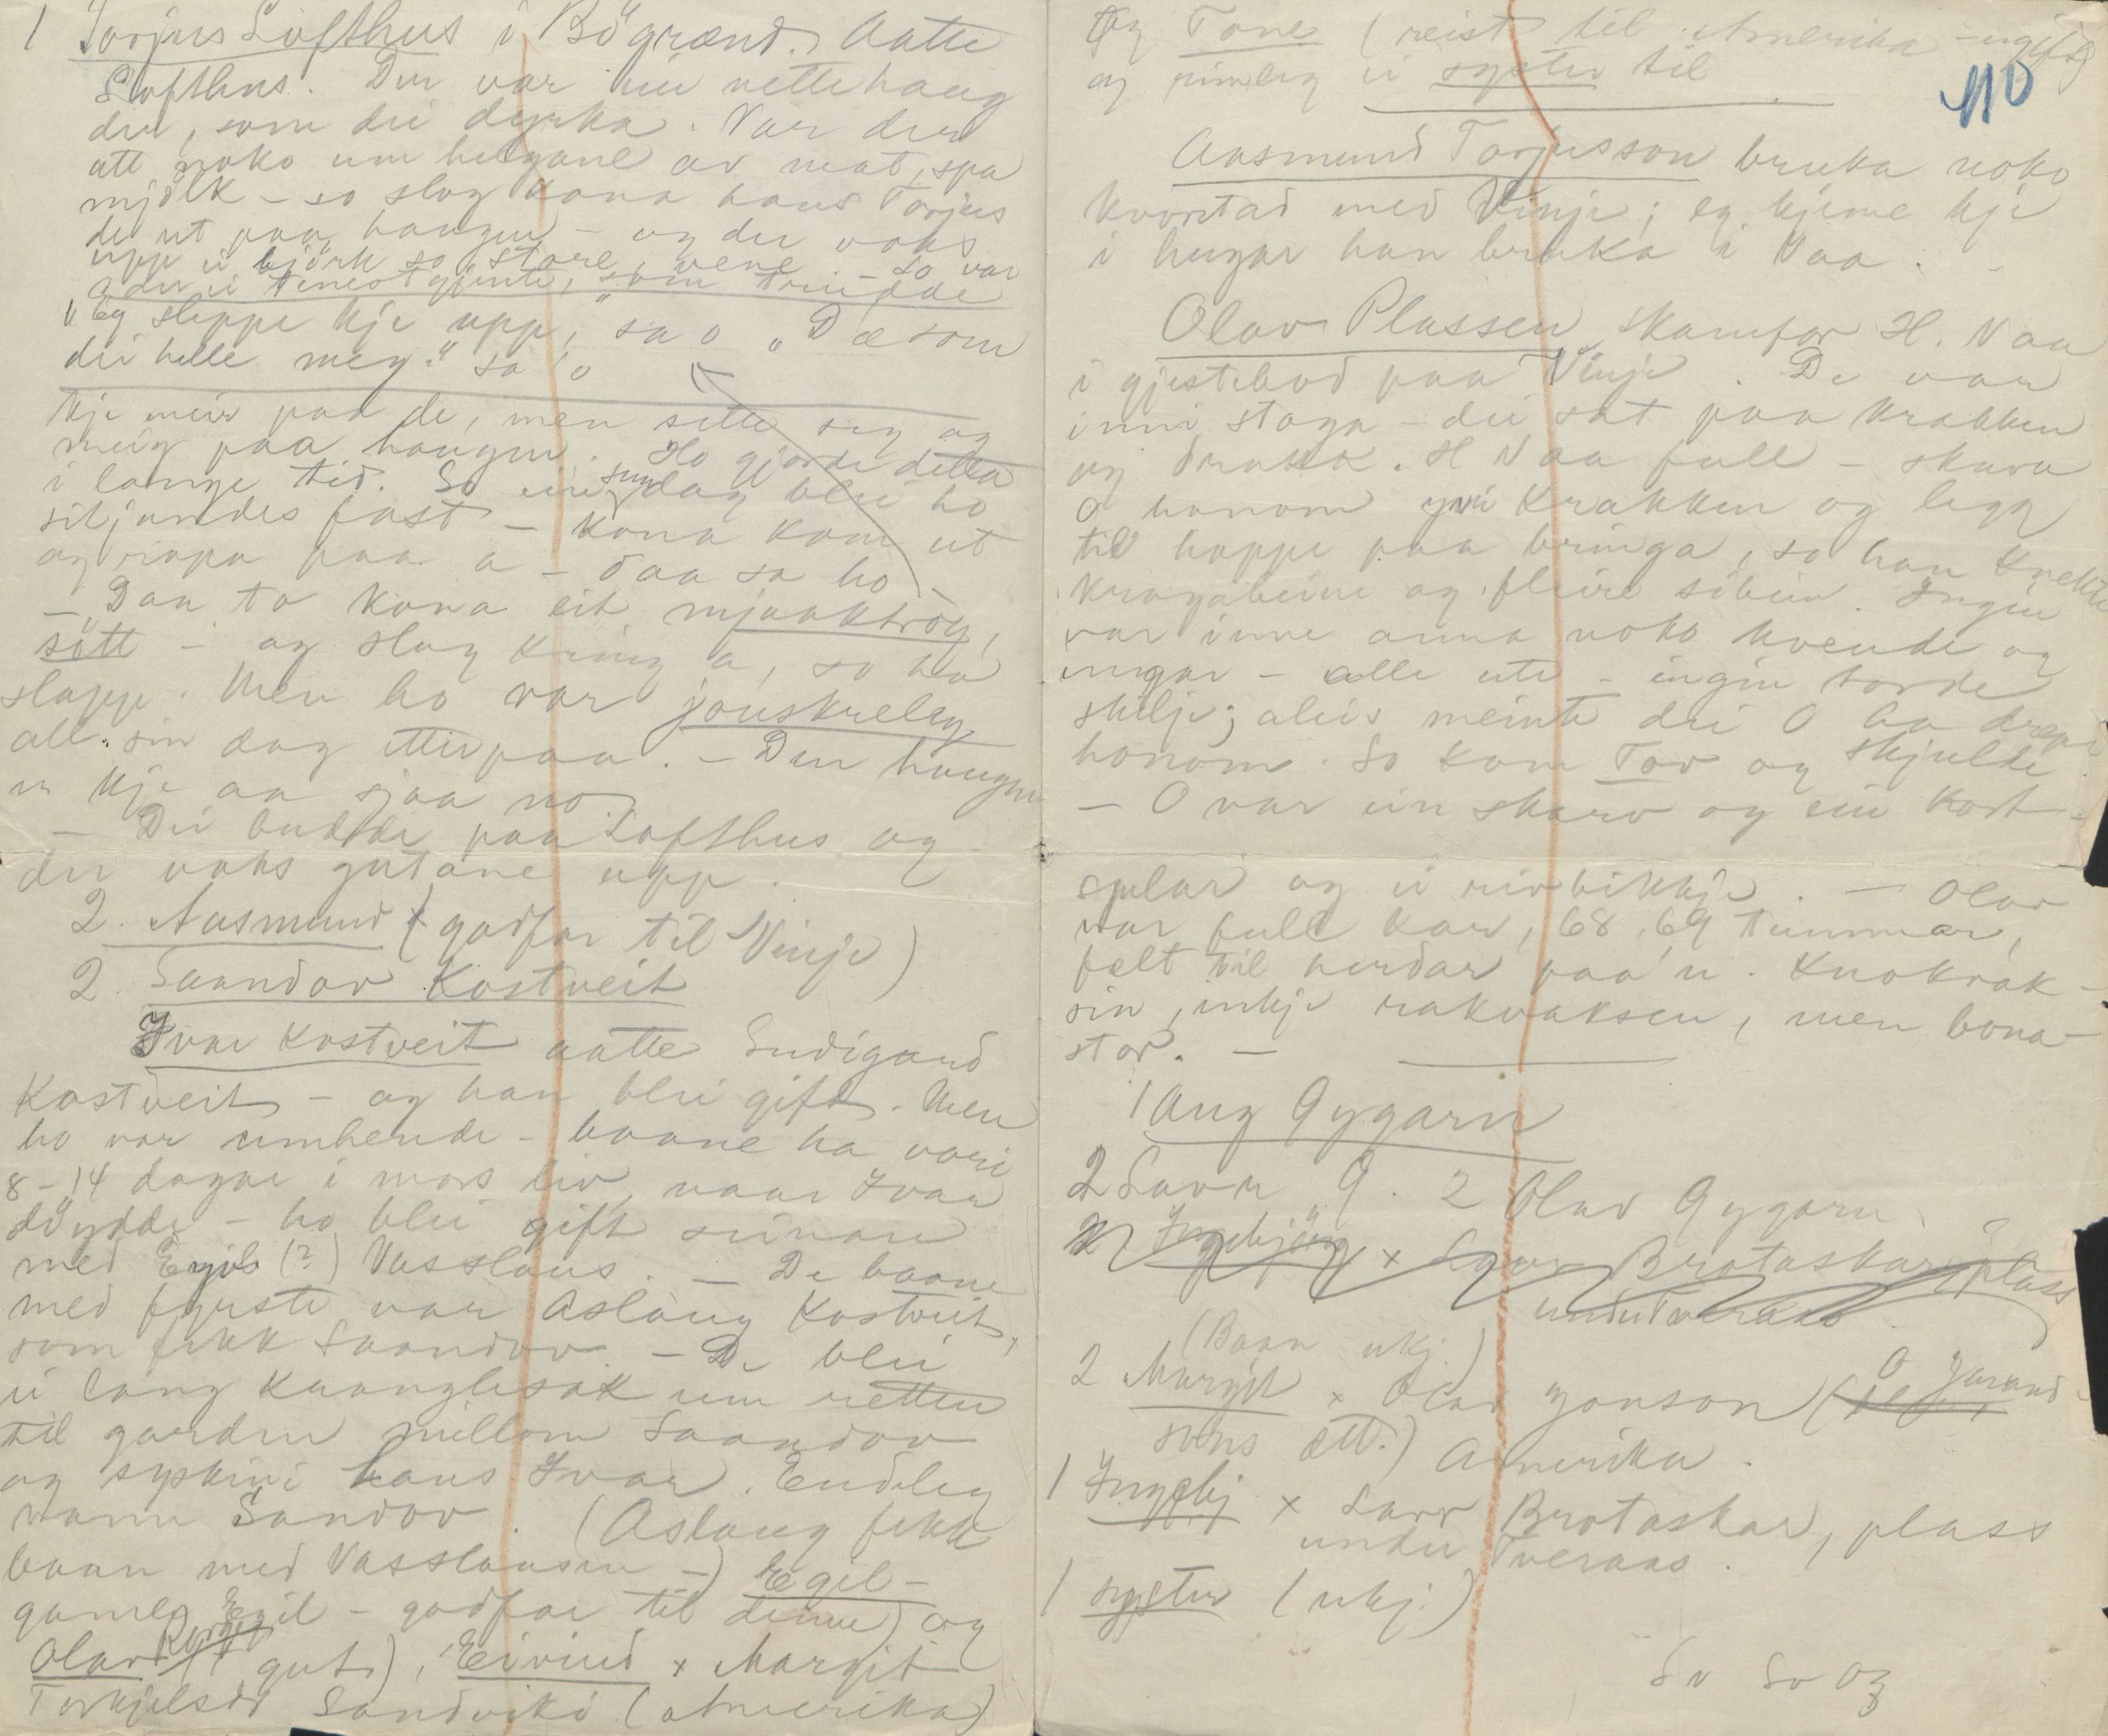 1 Torjus Lofthus i Bögrænd. Aatte
Lofthus. Der var ein vettehaug
der, som dei dyrka. Var der
att noko um helgane av mat, spa
mjölk - so slog kona hans Torjus
de ut paa haugen - og der voks
upp ei björk so store, vene. - So var
der ei tenestgjente, som
"Eg sleppe kje upp," sa o "Dæ som
dei helle meg." sa o
kje meir paa de, men sette seg og
meig paa haugen. Ho gjorde detta
i lange tid. So ein sundag blei ho
sitjandes fast - kona kom ut
og ropa paa a - daa sa ho -
- Daa to kona eit mjaaktrog,
sött - og slog kring a, so ho
slapp. Men ho var jonskreleg
all sin dag etterpaa. - Den haugen
er kje aa sjaa no.
- Dei budde paa Lofthus og
der voks gutane upp.
2. Aasmund (godfar til Vinje)
2. Saandov Kostveit
Ivar Kostveit aatte Sudigard
Kostveit - og han blei gift. Men
ho var umhende - baane ha vori
8-14 dagar i mors liv, naar Ivar
döydde - ho blei gift sinare
med Egil (?) Vasslaus. - De baane
med fyrste var Aslaug Kostveit,
som fekk Saandov. - De blei
ei lang kranglesak um retten
til garden millom Saandov
og syskini hans Ivar. Endeleg
vann Sandov. (Aslaug fekk
baan med Vasslausen -) Egil -
gamle Egil - godfar til denne) og
Olav (1 gut), Eivind x Margit
Torkjelsdr Sandviki (Amerika)
Og Tone (reist til Amerika - ugift)
og rimeleg ei syster til
110
Aasmund Torjusson bruka noko
kvorstad med Vinje; eg kjeme kje
i hugar han bruka i Vaa.
Olav Plassen skamfor H. Vaa
i gjestebod paa Vinje. De var
inni stoga - dei sat paa krakken
og drakk. H Vaa full - skuva
O honom yvi krakken og legg
til hoppe paa bringa, so han knekte
kragabeine og fleire sibein. Ingin
var inne anna noko kvende og
ungar - alle ute - ingin torde
skilje; aleis meinte dei O ha drepi
honom. So kom Tov og skjulde.
- O var ein skarv og ein kort-
spelar og ei rivbikkje. - Olav
var full kar, 68, 69 tummar,
fælt til herdar paa'n. Knokrak-
sin, inkje rakvaksen, men bona-
stor. -
1 Aug Gygarn
2 Savn G. 2 Olav Gygarn
2 Ingebjörg x Brotaskar, plass
under Tveraas
(Baan ukj.)
2 Margit x Olav Jonson ( O Jarand-
sons ætt.) Amerika.
1 Ingebj x Brotaskar, plass
under Tveraas.
1 syster (ukj.)
So So Og